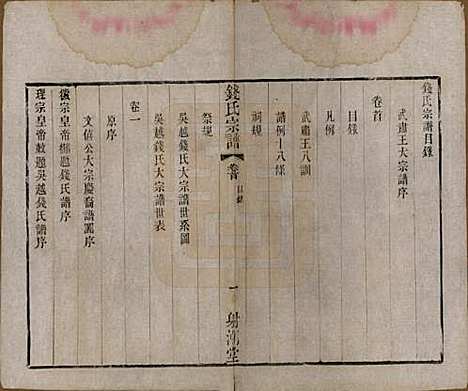 錢氏宗譜目錄
卷首
武肅王大宗譜序
目錄
凡例
武肅王八訓
譜例十八條
祠規
錢氏宗譜
卷首
目錄
一
射潮堂
祭規
吳越錢氏大宗譜世系圖
吳越錢氏大宗譜世表
卷一
原序
文僖公大宗慶裔譜舊序
徽宗皇帝御題錢氏譜序
理宗皇帝敕題吳越錢氏譜序